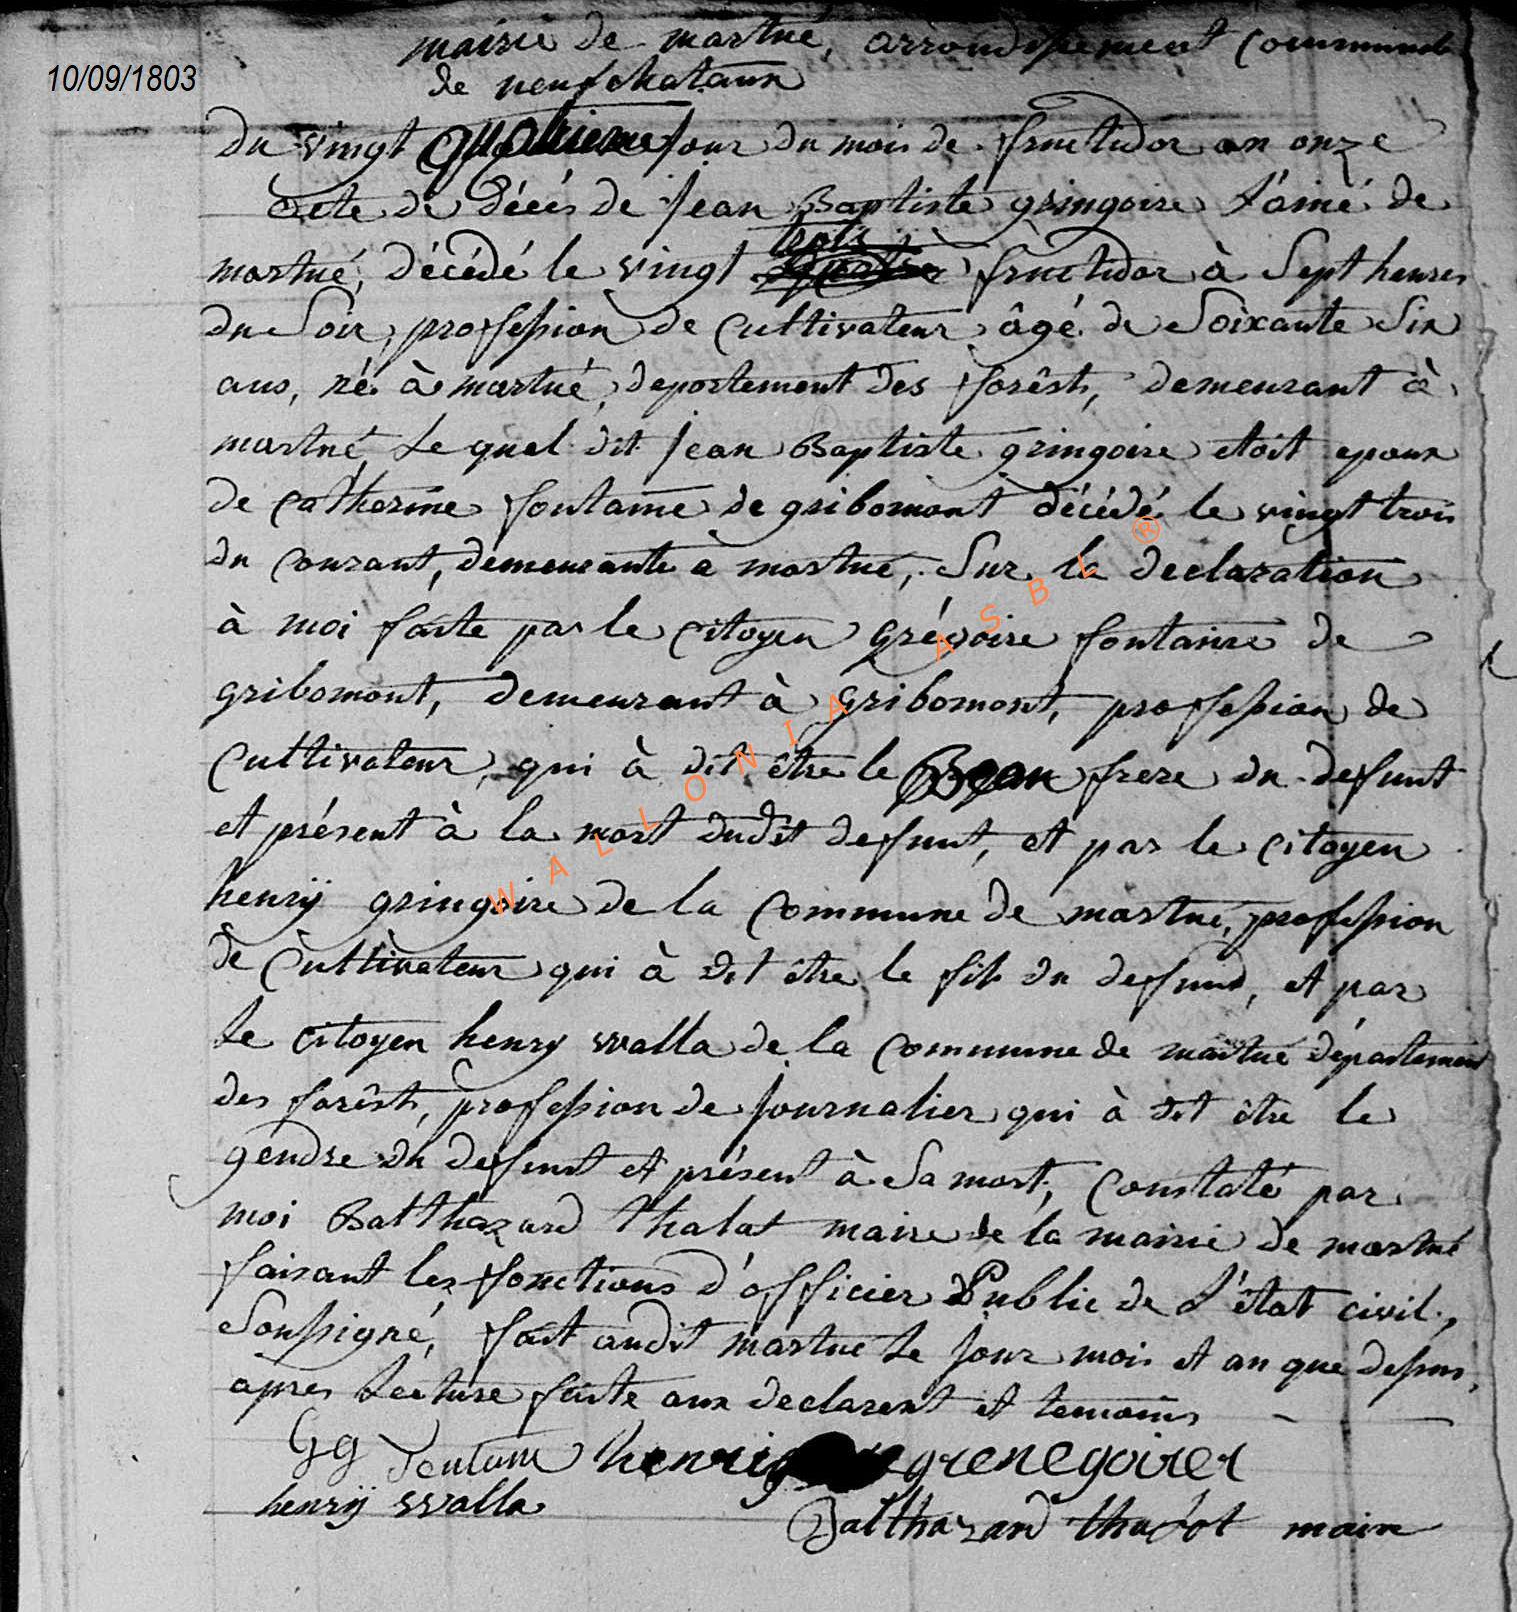 mairie de martué, arrondissement communal
10/09/1803
de neufchataux
Du vingt quatrieme jour du mois de fructidor an onze
acte de décés de jean Baptiste gringoire L'ainé de
martué, décédé le vingt trois fructidor à Sept heures
du Soir, profession de Cultivateur, âgé de Soixante Six
ans, né à martué, departement des forêsts, demeurant à
martué, Le quel dit jean Baptiste gringoire etoit epoux
de Catherine fontaine de gribomont décédé le vingt trois
du Courant, demeurante a martué, Sur la declaration
à moi faite par le Citoyen grégoire fontaine de
gribomont, demeurant à gribomont, profession de
Cultivateur, qui à dit être le Beau frere du defunt
et présent à la mort dudit defunt, et par le Citoyen
henrÿ gringoire de la Commune de martué, profession
de Cultivateur qui à dit être le fils du defunt, et par
Le Citoyen henry Walla de la Commune de martué département
des forêsts, profession de journalier qui à dit être le
gendre du defunt et présent à Sa mort, Constaté par
moi Balthazard thalot maire de la mairie de martué
faisant les fonctions d'officier Public de L'état civil,
Soussigné, fait audit martué Le jour mois et an que dessus,
apres Lecture faite aux declarent et temoins
Gg Fontaine henri grenegoirer
henrÿ Walla
Balthazard thalot maire
WALLONIA ASBL ®